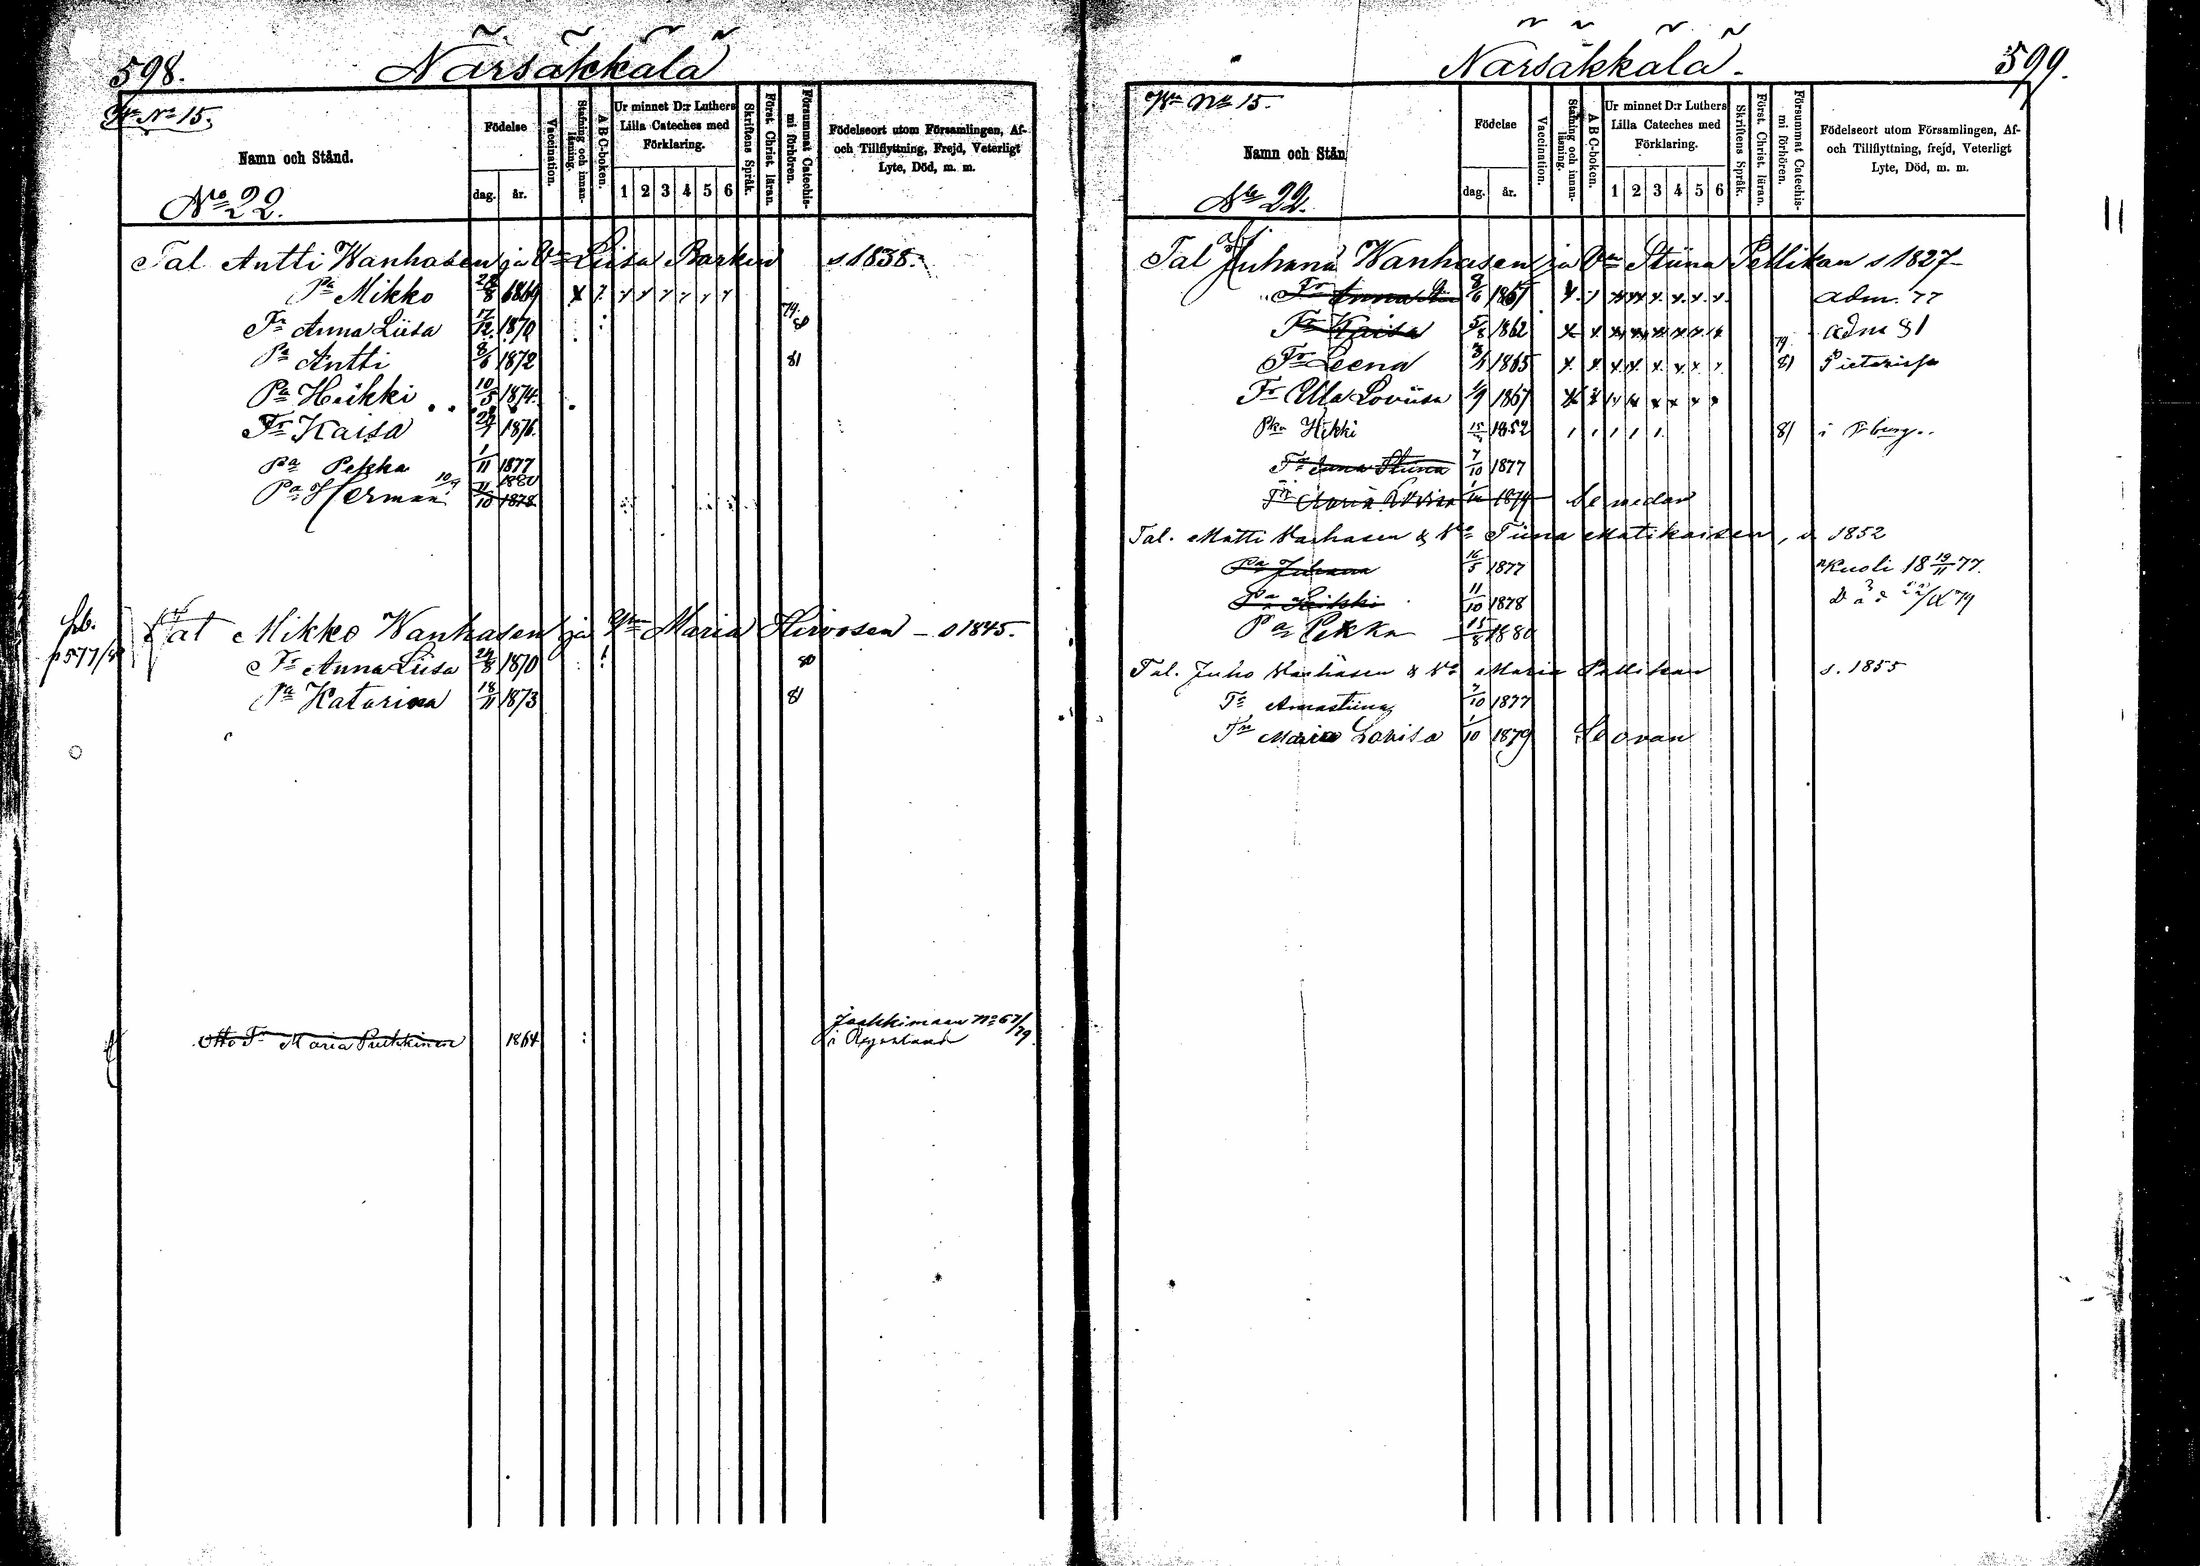 598. Närsäkkälä
Wn No 15.
Namn och Stånd.
No 22.
Födelse
dag. år.
Vaccination.
Stafning och innanläsning.
A B C-boken.
Ur minnet D:r Luthers Lilla Cateches med Förklaring.
1 2 3 4 5 6
Skriftens Språk.
Först. Christ. läran.
Försummat Catechismi förhören.
Födelseort utom Församlingen, Af- och Tillflyttning, Frejd, Veterligt Lyte, Död, m. m.
Tal Antti Wanhasen ja Vm Liisa Parkin s 1838.
Pa Mikko 28/8 1869
Tr Anna Liisa 17/12 1870 79. 80
Pa Antti 8/6 1872 81
Pa Heikki 10/5 1874.
Tr Kaisa 1876.
Pa Pekka 1/11 1877
Pa Herman 10/9 1880 11/10 1878
fb. p 577/
Tal Mikko Wanhasen ja Vm Maria Hirvosen - s 1845.
Tr Anna Liisa 24/8 1870 80
Pa Katarina 18/11 1873 81
Otto Tr Maria Puhkinen 1864 Jaakkimaan No 67/79
i Ryssland
Närsäkkälä. 599.
Wn No 15.
Namn och Stån
No 22.
Födelse
dag. år.
Vaccination.
Stafning och innanläsning.
A B C-boken.
Ur minnet D:r Luthers Lilla Cateches med Förklaring.
1 2 3 4 5 6
Skriftens Språk.
Först. Christ. läran.
Försummat Catechismi förhören.
Födelseort utom Församlingen, Af- och Tillflyttning, frejd, Veterligt Lyte, Död, m. m.
Tal Juhana Wanhasen ja Vm Stiina Pellikan s 1827-
Tr Anna 1857 adm. 77
Tr Kaisa 5/8 1862 adm 81
Tr Leena 1865 79 81 Pietarissa
Tr Ulla Loviisa 1/9 1867
Pka Heikki 1852 81 i Pburg..
Tr Anna Stiina 7/10 1877
Tr Maria Lovisa 1/10 1879 Se nedan
Tal. Matti Vanhasen & Vo Tiina Matikaisen, s. 1852
Pa Juhana 16/5 1877 Kuoli 18 19/11 77.
Pa Heikki 11/10 1878
Pa Pekka 15/8 1880
Tal. Juho Vanhasen & Vo Maria Pellikan s. 1855
Tr Annastiina 7/10 1877
Tr Maria Lovisa 1/10 1879 Se ovan